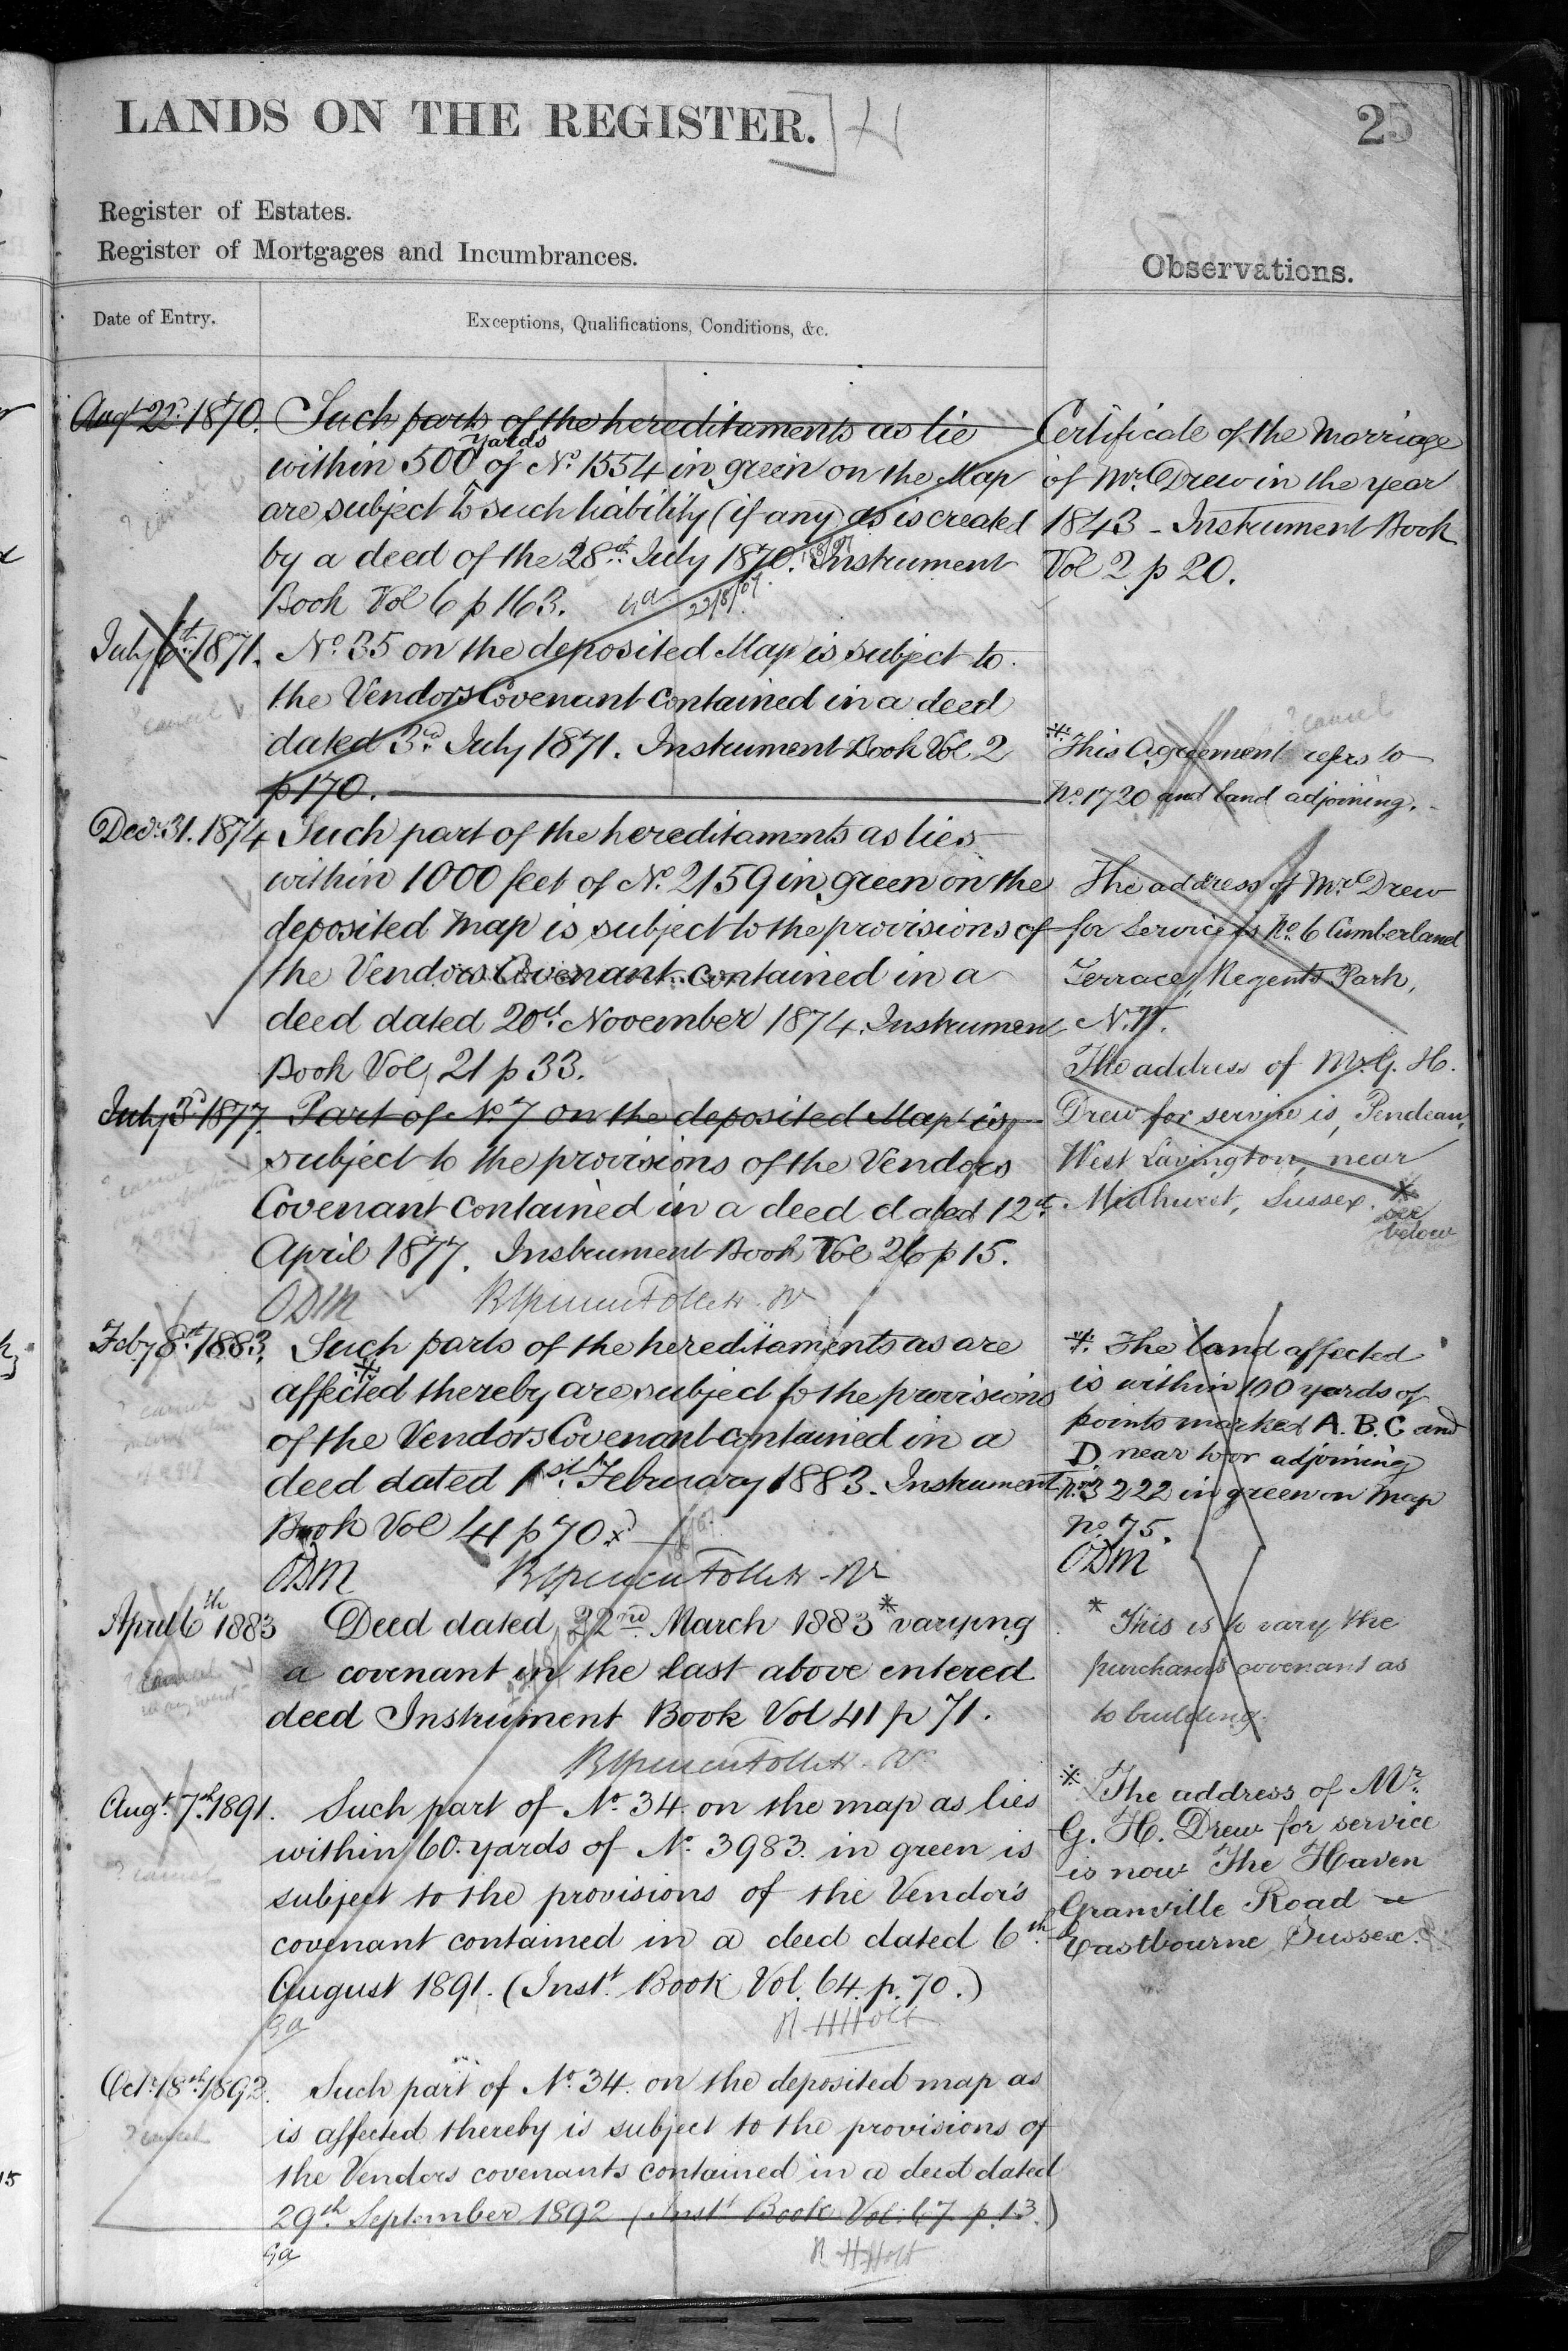 LANDS ON THE REGISTER.
25
Register of Estates.
Register of Mortgages and Incumbrances.
Observations.
Date of Entry.
Exceptions, Qualifications, Conditions, &c.
Augt 22d. 1870. Such parts of the hereditaments as lie
within 500 yards of No. 1554 in green on the Map
are subject to such liability (if any) as is created
by a deed of the 28th July 1870. Instrument
Book Vol 6 p 163.
22/8/07.
? cancel
July 6th 1871. No. 35 on the deposited Map is subject to
the Vendors Covenant contained in a deed
dated 3rd July 1871. Instrument Book Vol 2
p 170.
? cancel
Decr. 31. 1874 Such part of the hereditaments as lies
within 1000 feet of No. 2159 in green on the
deposited Map is subject to the provisions of
the Vendors Covenant contained in a
deed dated 20th November 1874. Instrument
Book Vol 21 p 33.
July 3d 1877. Part of No. 7 on the deposited Map is
subject to the provisions of the Vendors
Covenant contained in a deed dated 12th
April 1877. Instrument Book Vol 26 p 15.
? cancel
ODM
Feby 8th 1883. Such parts of the hereditaments as are
affected * thereby are subject to the provisions
of the Vendors Covenant contained in a
deed dated 1st February 1883. Instrument
Book Vol 41 p 70.
? cancel
ODM
April 6th 1883 Deed dated 22nd March 1883 * varying
a covenant in the last above entered
deed Instrument Book Vol 41 p 71.
? cancel
Augt. 7th 1891. Such part of No. 34 on the map as lies
within 60 yards of No. 3983 in green is
subject to the provisions of the Vendor's
covenant contained in a deed dated 6th
August 1891. (Instt. Book Vol. 64. p. 70.)
? cancel
R HHolt
Octr. 18th 1892. Such part of No. 34 on the deposited map as
is affected thereby is subject to the provisions of
the Vendors covenants contained in a deed dated
29th September 1892 (Instt Book Vol. 67 p. 13.)
? cancel
R HHolt
Certificate of the Marriage
of Mr. Drew in the year
1843 - Instrument Book
Vol 2 p 20.
? cancel
* This Agreement refers to
No. 1720 and land adjoining.
The address of Mr Drew
for Service is No. 6 Cumberland
Terrace, Regents Park,
N.W.
The address of Mr. G. H.
Drew for service is, Pendean,
West Lavington, near
Midhurst, Sussex. *
see
below
* The land affected
is within 100 yards of
points marked A. B. C and
D. near to or adjoining
No. 3222 in green on Map
No. 75.
ODM
* This is to vary the
purchasers covenant as
to building.
* The address of Mr.
G. H. Drew for service
is now The Haven
Granville Road
Eastbourne, Sussex.